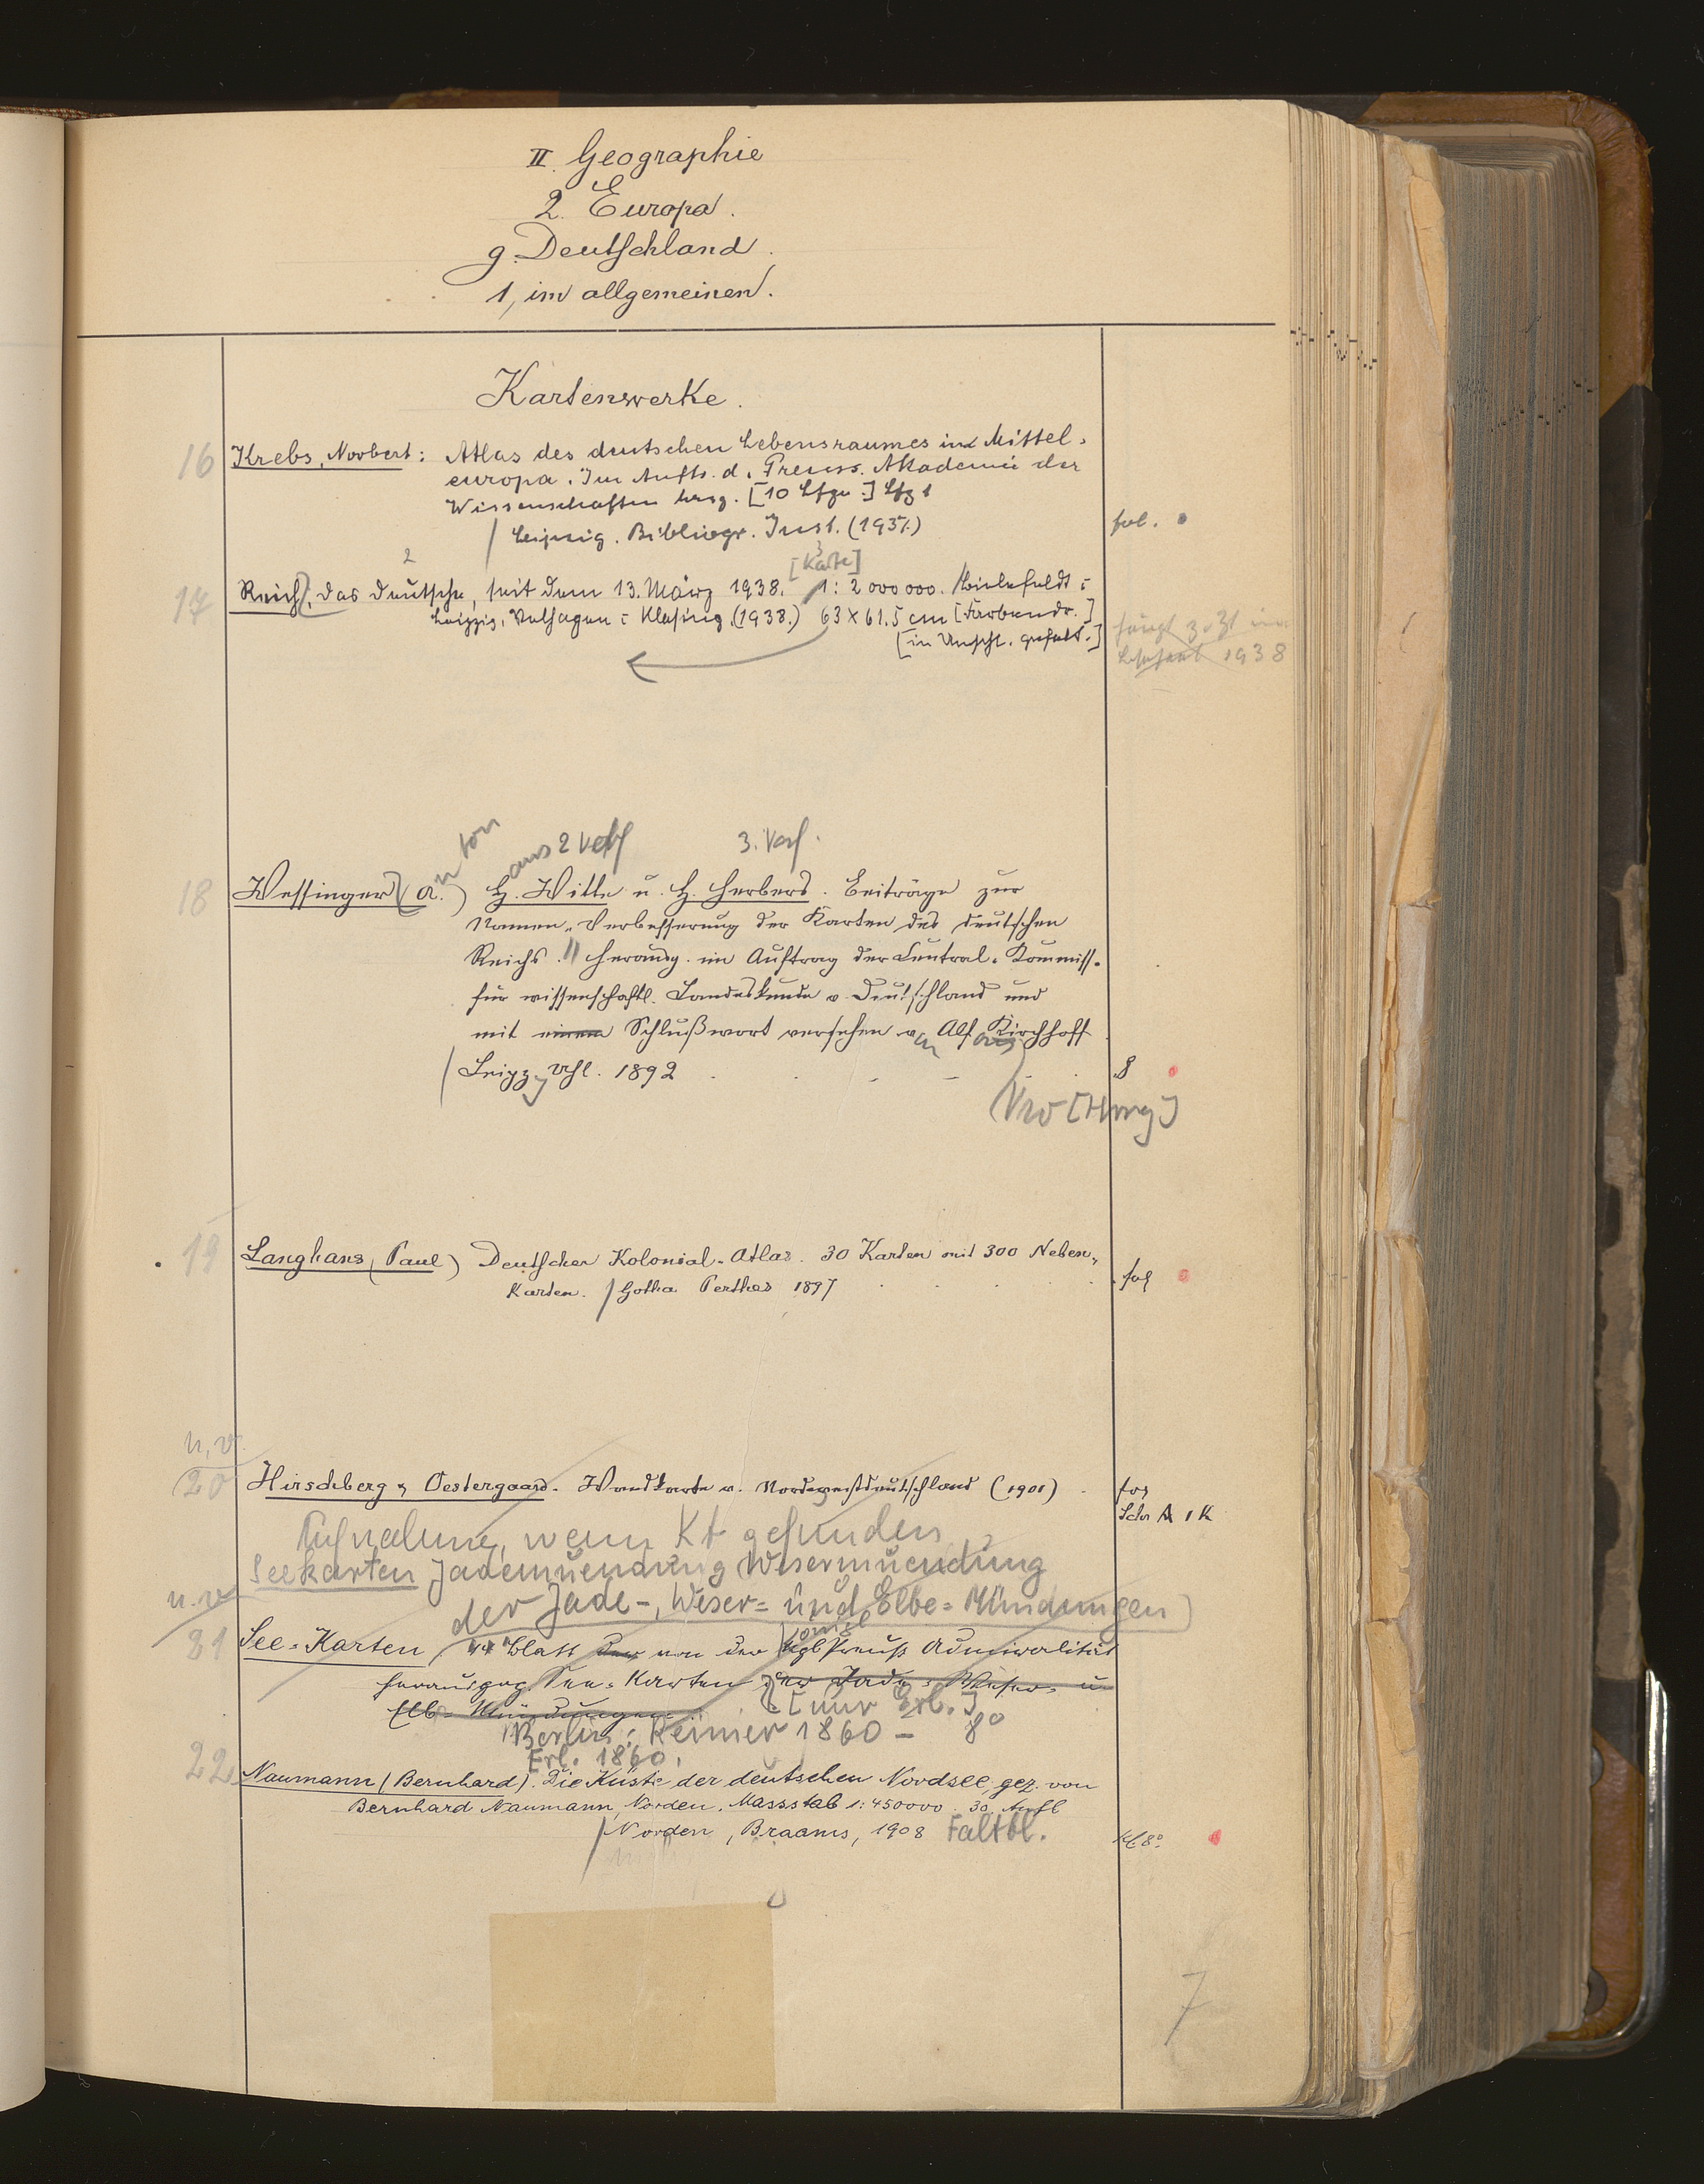 II. Geographie
2. Europa.
g. Deutschland.
1, im allgemeinen.
Kartenwerke.
16 Krebs, Norbert: Atlas des deutschen Lebensraumes in Mittel-
europa. Im Auftr. d. Preuss. Akademie der
Wissenschaften hrsg. [10 Lfgn.] Lfg 1
/ Leipzig. Bibliogr. Inst. (1937.) fol.
2 3 [Karte]
17 Reich, das deutsche, seit dem 13. März 1938. / 1: 2 000 000. / Bielefeldt =
Leipzig, Velhagen = Klasing. (1938.) 63 x 61.5 cm [Farbendr.]
[in Umschl. gefalt.]
hängt z. Zt im
Lesesaal 1938
n ton aus 2 Verf 3. Verf.
18 Wessinger (A.) H. Witte u. H. Herbers. Beiträge zur
Namen-Verbesserung der Karten des deutschen
Reichs. // Herausg. im Auftrag der Central-Kommiss.
für wissenschaftl. Landeskunde v. Deutschland und
mit einem Schlußwort versehen v. Alf. Kirchhoff
/ Leipz. 1892 8
Vw [Hrsg]
19 Langhans, (Paul) Deutscher Kolonial-Atlas. 30 Karten mit 300 Neben-
Karten. / Gotha Perthes 1897 fol
n. v.
20 Hirschberg & Oestergaard. Wandkarte v. Nordwestdeutschland (1901)
Schr A 1 K
Aufnahme, wenn Kt gefunden
Seekarten Jademuendung Wesermuendung
n. v. der Jade-, Weser= und Elbe= Mündungen)
21 See-Karten Blatt der von der Kgl Preuß Admiralität
herausgeg. See-Karten der Jade- Weser- u
Elb-Mündungen. [nur Erl.]
Berlin: Reimer 1860 - 8°
Erl. 1860.
22 Naumann (Bernhard). Die Küste der deutschen Nordsee, gez. von
Bernhard Naumann, Norden. Massstab 1: 450000. 30. Aufl
/ Norden, Braams, 1908 Faltbl. kl 8°
7